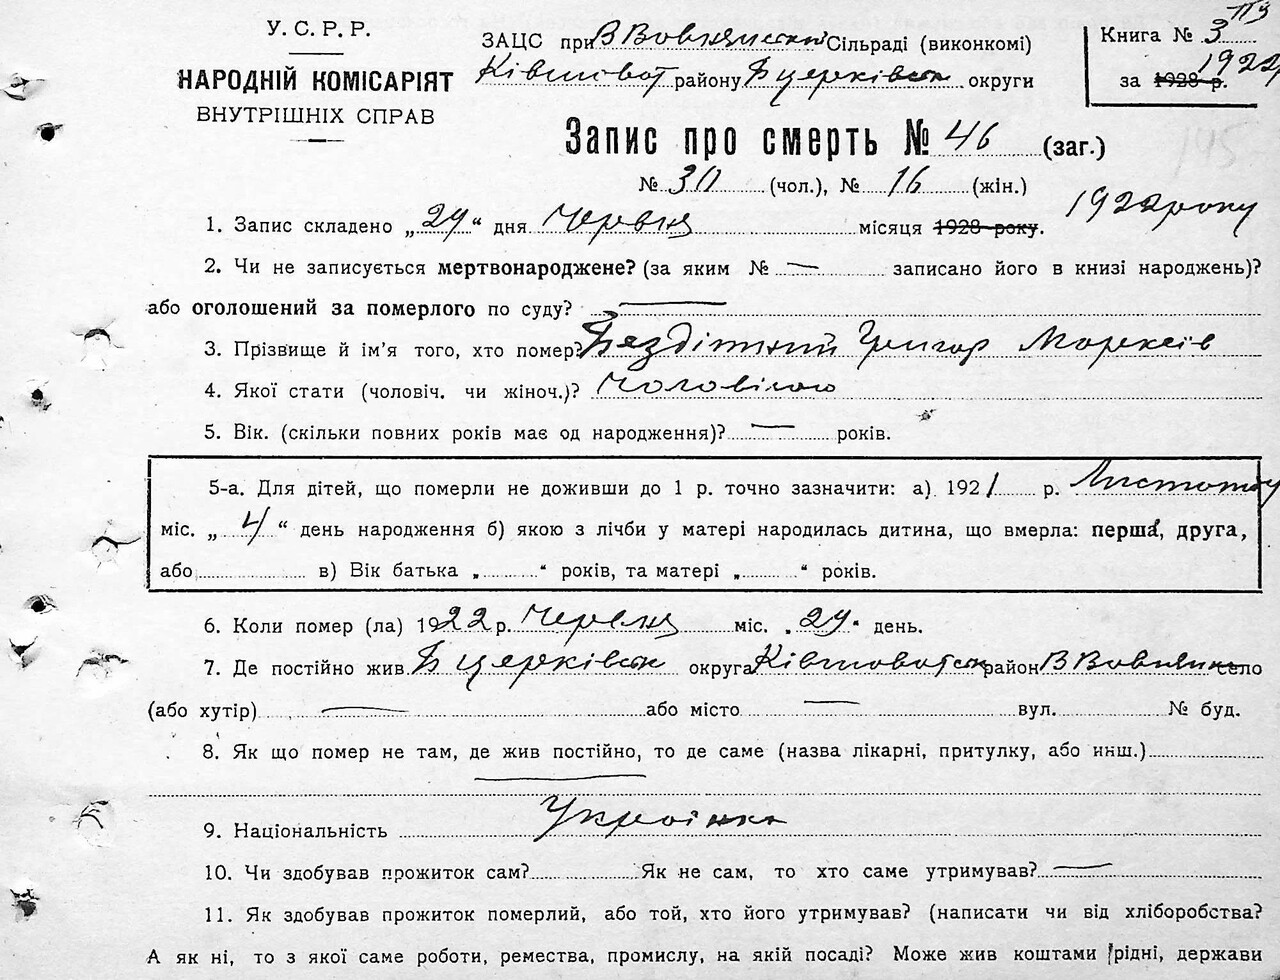 У.С.Р.Р.
НАРОДНІЙ КОМІСАРІЯТ
ВНУТРІШНІХ СПРАВ
ЗАЦС при В Вовнянській Сільраді (виконкомі)
Ківшоват району Б церківськ округи
Книга № 3
за 1928 р. 1922
Запис про смерть № 46 (заг.)
№ 30 (чол.), № 16 (жін.)
1. Запис складено „29“ дня Червня місяця 1928 року. 1922 року
2. Чи не записується мертвонароджене? (за яким № — записано його в книзі народжень)?
або оголошений за померлого по суду? —
3. Прізвище й ім'я того, хто помер? Бездітний Григор Мореїв
4. Якої стати (чоловіч. чи жіноч.)? Чоловічої
5. Вік. (скільки повних років має од народження)? — років.
5-а. Для дітей, що померли не доживши до 1 р. точно зазначити: а) 1921 р. Листопаду
міс. „4“ день народження б) якою з лічби у матері народилась дитина, що вмерла: перша, друга,
або в) Вік батька „ “ років, та матері „ “ років.
6. Коли помер (ла) 1922 р. Червня міс. „29“ день.
7. Де постійно жив Б церківськ округа Ківшоватськ район В Вовнянк село
(або хутір) — або місто — вул. № буд.
8. Як що помер не там, де жив постійно, то де саме (назва лікарні, притулку, або инш.)
—
9. Національність Україн
10. Чи здобував прожиток сам? Як не сам, то хто саме утримував? —
11. Як здобував прожиток померлий, або той, хто його утримував? (написати чи від хліборобства?
А як ні, то з якої саме роботи, ремества, промислу, на якій посаді? Може жив коштами рідні, держави